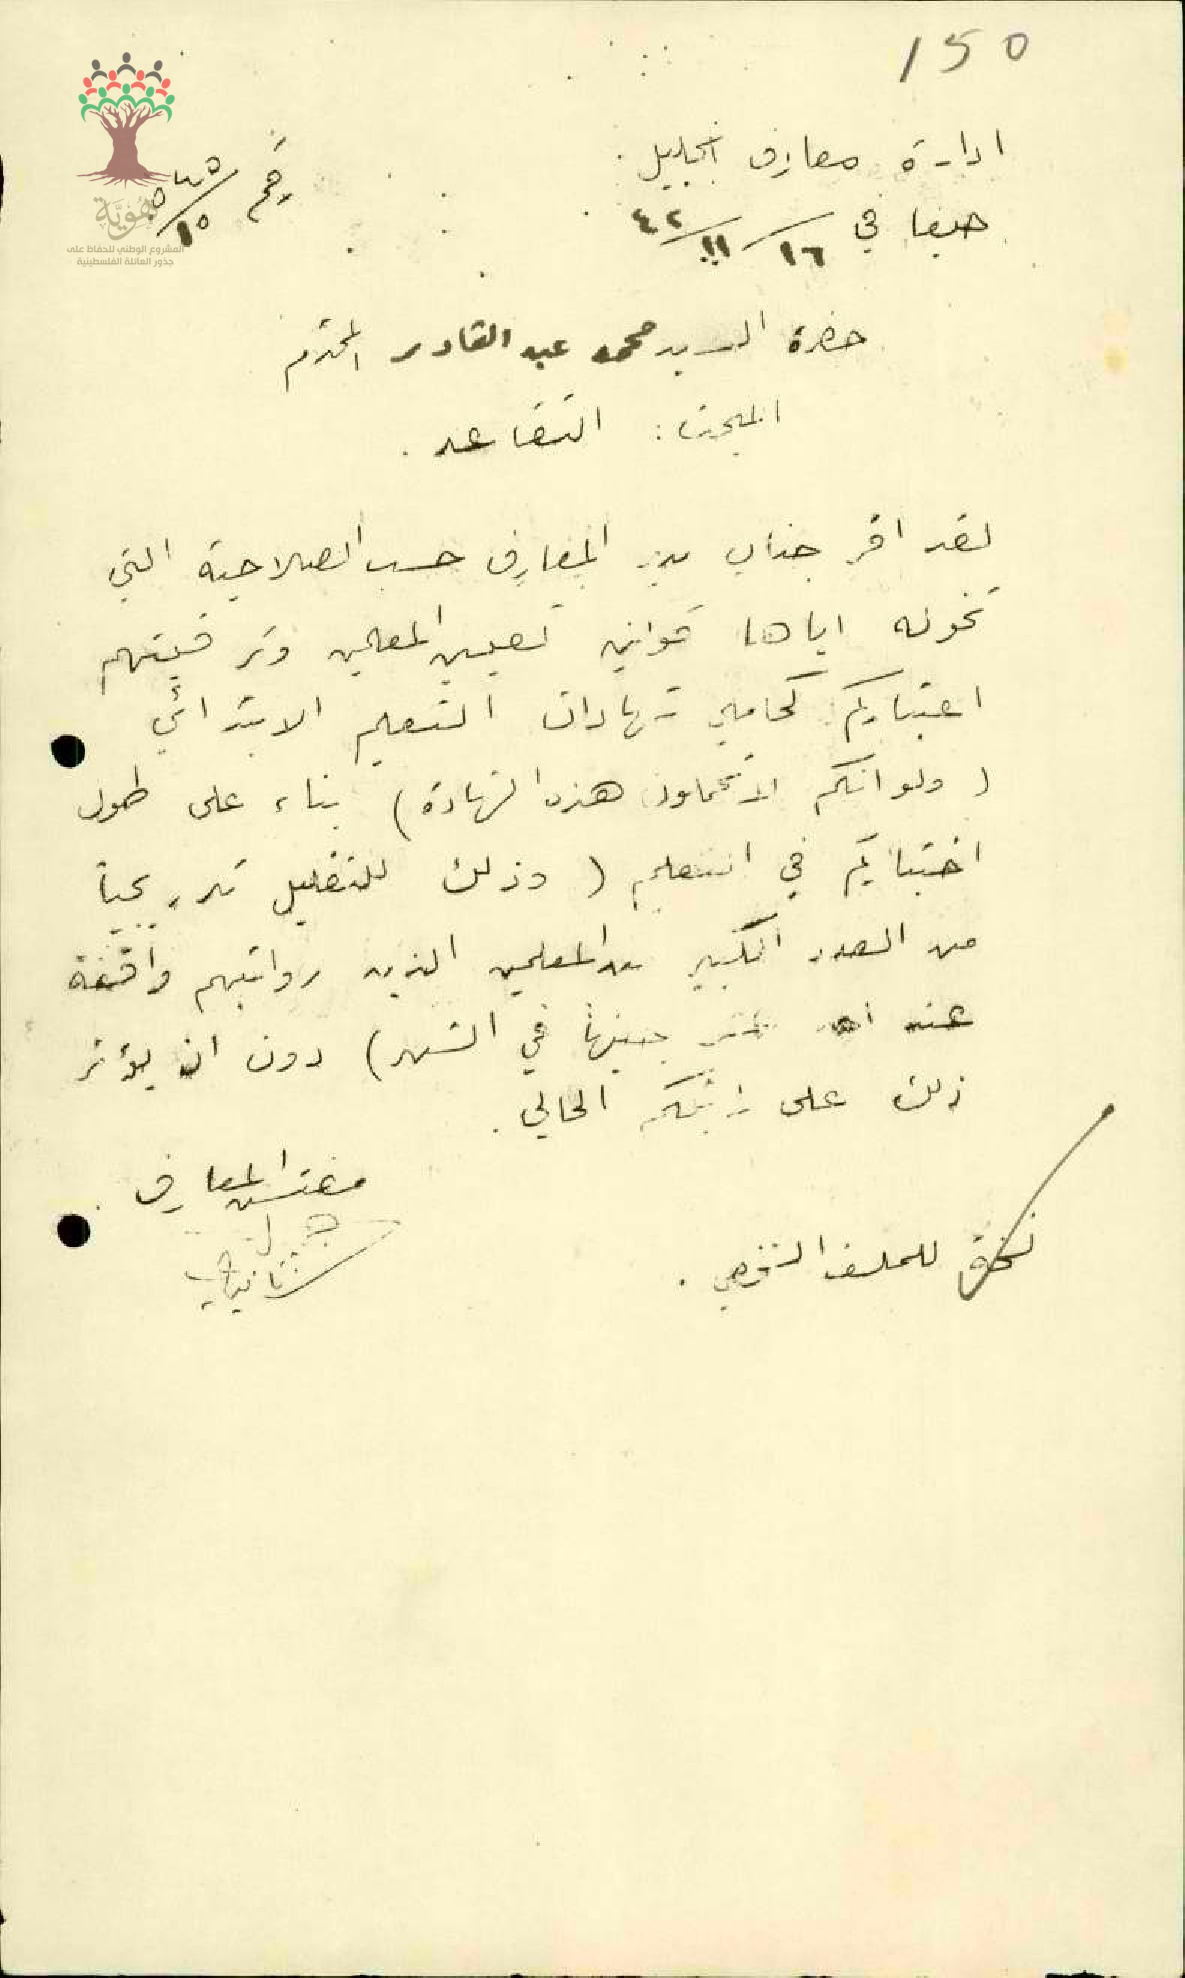 150
ادارة معارف الجليل
رقم
حيفا في ١٦/١١/٤٢
هُوِيَّة
المشروع الوطني للحفاظ على
جذور العائلة الفلسطينية
حضرة السيد محمد عبد القادر المحترم
المبحث: التقاعد.
لقد اقر جناب مدير المعارف حسب الصلاحية التي
تخوله اياها قوانين تعيين المعلمين وترقيتهم
اعتباركم كحاملي شهادات التعليم الابتدائي
(ولو انكم لا تحملون هذه الشهادة) بناء على طول
اختباركم في التعليم (وذلك للتقليل تدريجياً
من العدد الكبير من المعلمين الذين رواتبهم واقفة
عند احد عشر جنيهاً في الشهر) دون ان يؤثر
ذلك على راتبكم الحالي.
مفتش المعارف
نسخة للملف الشخصي.